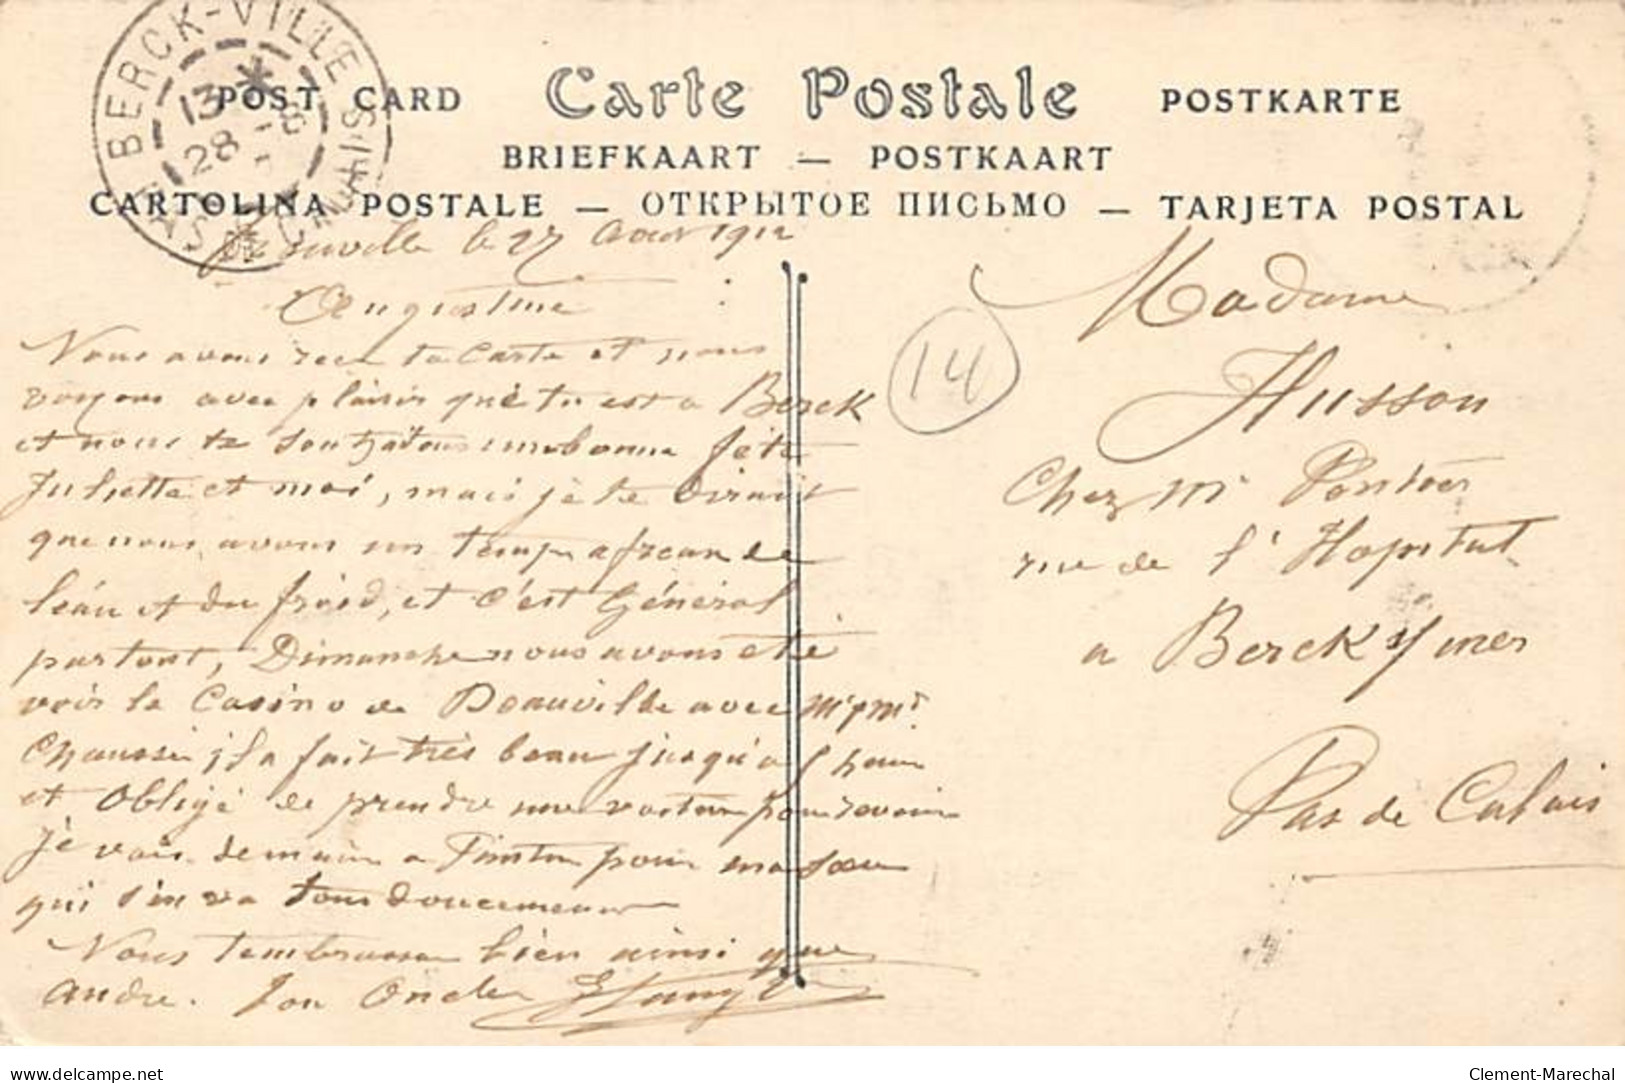 BERCK-VILLE
13 *
28 - 8
POST CARD Carte Postale POSTKARTE
BRIEFKAART — POSTKAART
CARTOLINA POSTALE — ОТКРЫТОЕ ПИСЬМО — TARJETA POSTAL
le 27 Aout 1912
Augustine
Nous avons recu ta Carte et nous
voyons avec plaisir que tu est a Berck
et nous te souhaitons une bonne fête
Juliette et moi, mais je te dirait
que nous avons un temps afreau de
l'eau et du froid, et c'est Général
partout, Dimanche nous avons eté
voir le Casino de Deauville avec Mr & Me
il a fait très beau jusqu'a
et obligé de prendre une voiture pour revenir
Je vais demain a pour ma Sœur
qui s'en va tout doucement
Nous t'embrassons bien ainsi que
André. Ton Oncle
14
Madame
Husson
Chez Mr
rue de l'Hopital
a Berck s/ mer
Pas de Calais
delcampe.net
Clement-Marechal